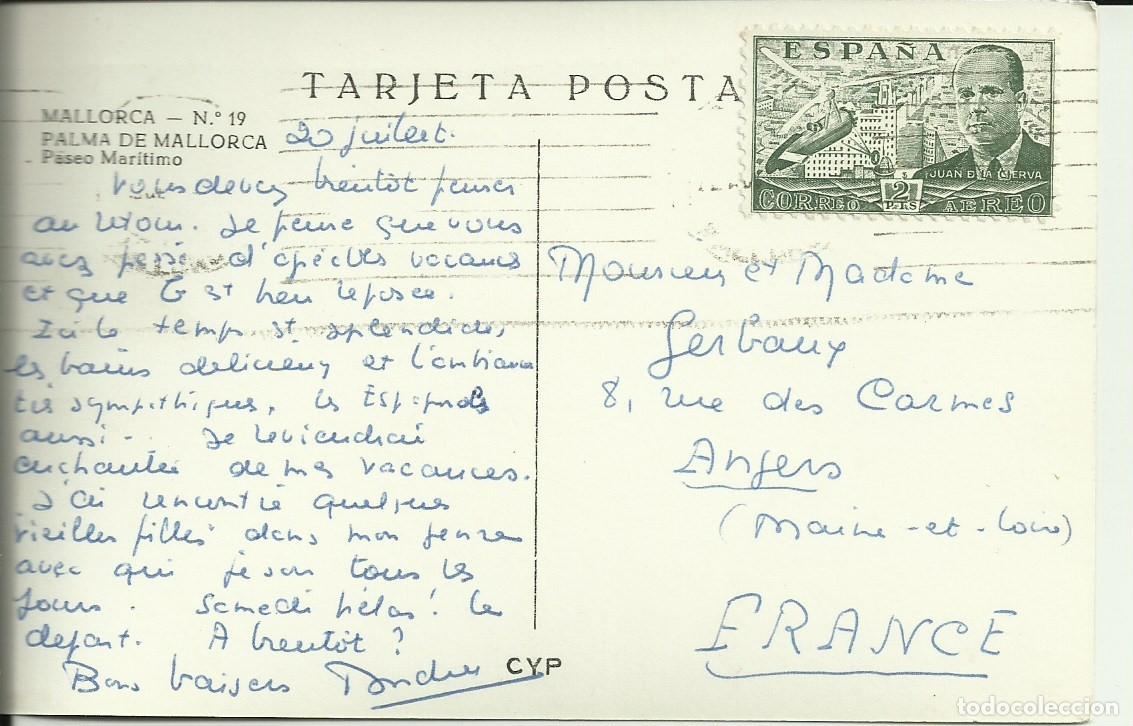 TARJETA POSTA
ESPAÑA
JUAN DE LA CIERVA
2
PTS
CORREO AEREO
MALLORCA — N.º 19
PALMA DE MALLORCA
Paseo Marítimo
20 juillet.
Vous devez bientôt penser
au retour. Je pense que vous
avez passé d'agréables vacances
et que est bien reposée.
Ici le temps est splendide,
les bains délicieux et l'ambiance
très sympathique, les Espagnols
aussi. Je reviendrai
enchantée de mes vacances.
J'ai rencontré quelques
vieilles filles dans mon genre
avec qui je sors tous les
jours. Samedi hélas! le
départ. A bientôt ?
Bons baisers Andrée
CYP
Monsieur et Madame
Gerbaux
8, rue des Carmes
Angers
(Maine-et-Loire)
FRANCE
todocoleccion